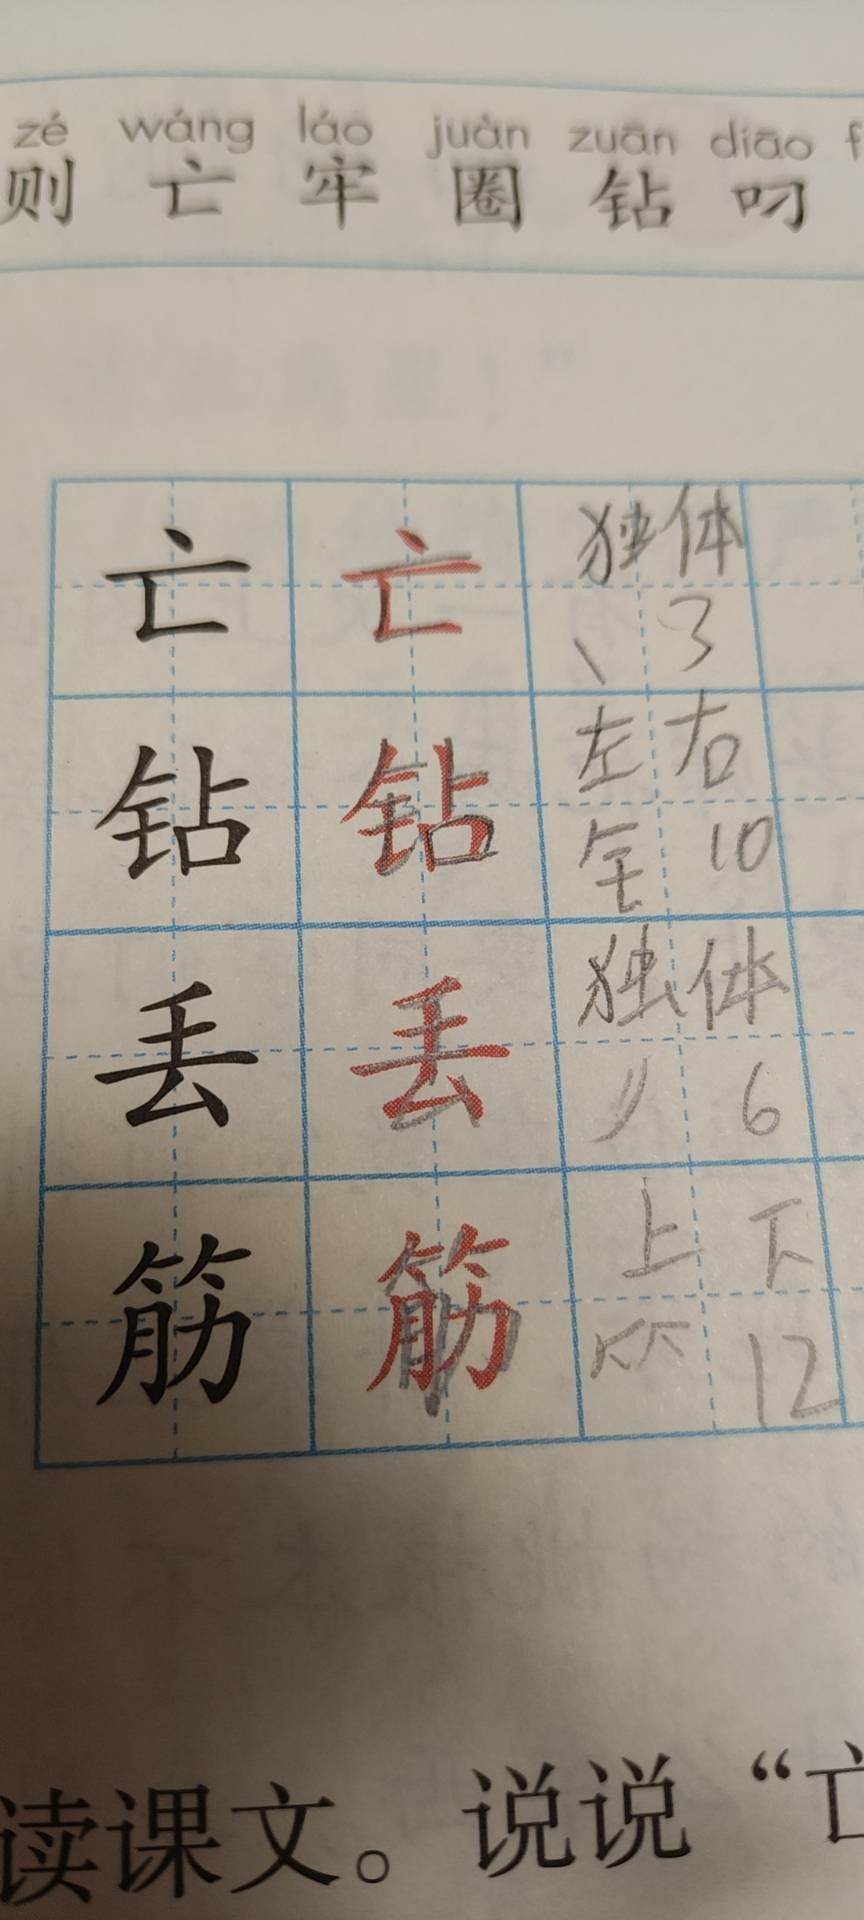 zé wáng láo juàn zuān diāo f
则 亡 牢 圈 钻 叼
亡 亡 独体
丶 3
钻 钻 左右
钅 10
丢 丢 独体
丿 6
筋 筋 上下
⺮ 12
读课文。说说“亡